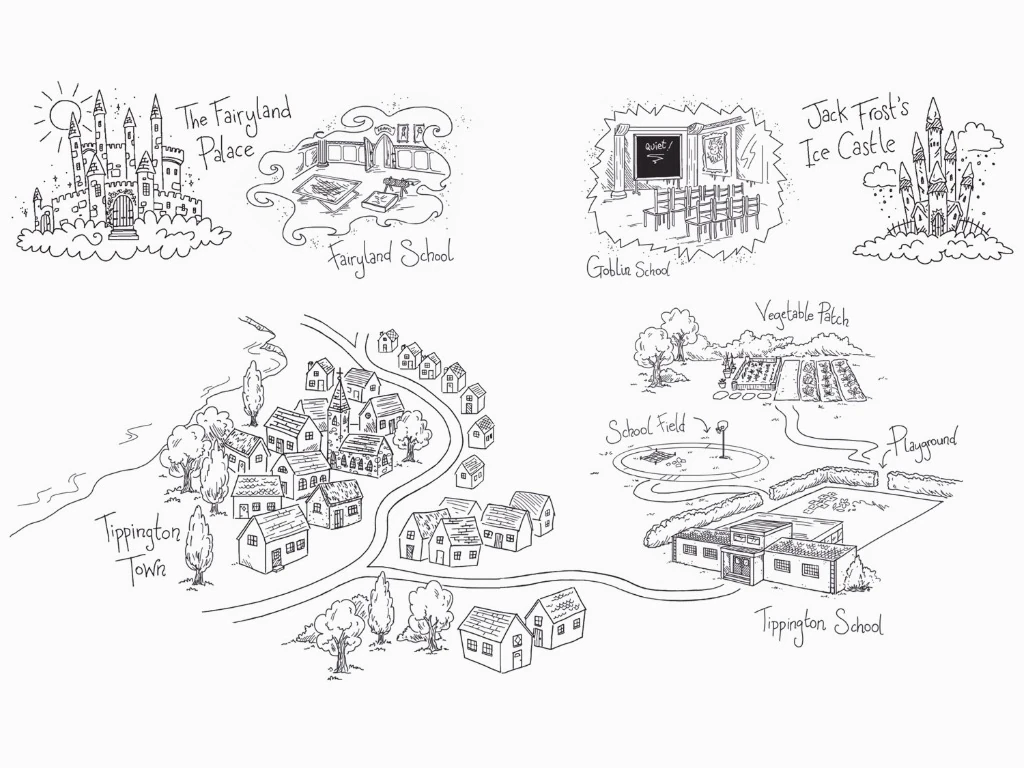 The Fairyland
Palace
Fairyland School
Quiet!
Goblin School
Jack Frost's
Ice Castle
Vegetable Patch
School Field
Playground
Tippington
Town
Tippington School